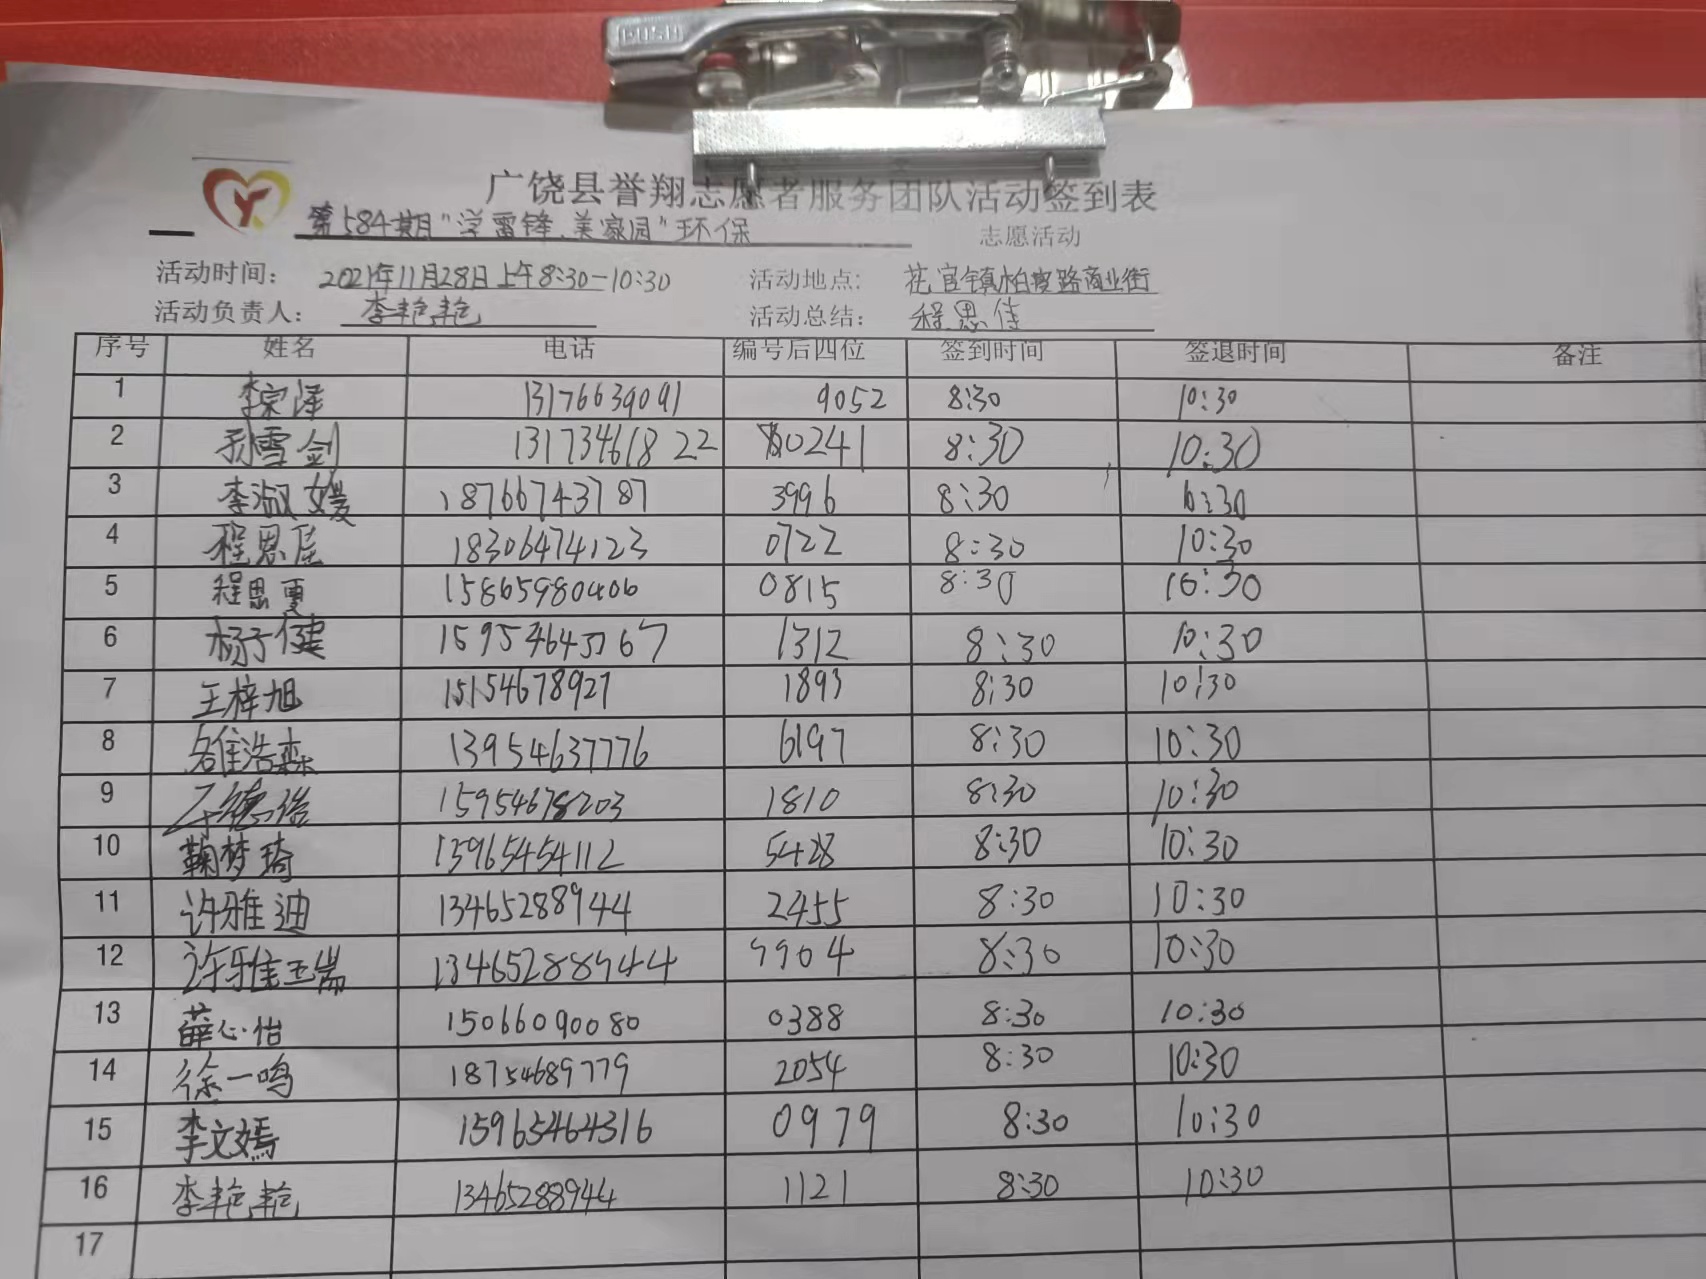 PUSH
广饶县誉翔志愿者服务团队活动签到表
第584期"学雷锋、美家园"环保 志愿活动
活动时间: 2021年11月28日上午8:30—10:30 活动地点: 花官镇柏寝路商业街
活动负责人: 李艳艳 活动总结: 程思佳
序号 姓名 电话 编号后四位 签到时间 签退时间 备注
1 李宗泽 13176639091 9052 8:30 10:30
2 孙雪剑 13173461822 0241 8:30 10:30
3 李淑媛 18766743787 3996 8:30 10:30
4 程思佳 18306474123 0722 8:30 10:30
5 程思雯 15865980406 0815 8:30 10:30
6 杨子健 1312 8:30 10:30
7 王梓旭 15154678927 1893 8:30 10:30
8 雒浩森 13954637776 6197 8:30 10:30
9 15954678203 1810 8:30 10:30
10 鞠梦琦 13965454112 5428 8:30 10:30
11 许雅迪 13465288944 2455 8:30 10:30
12 许雅瑞 13465288944 9904 8:30 10:30
13 薛心怡 15066090080 0388 8:30 10:30
14 徐一鸣 18754689779 2054 8:30 10:30
15 李文嫣 15965464316 0979 8:30 10:30
16 李艳艳 13465288944 1121 8:30 10:30
17